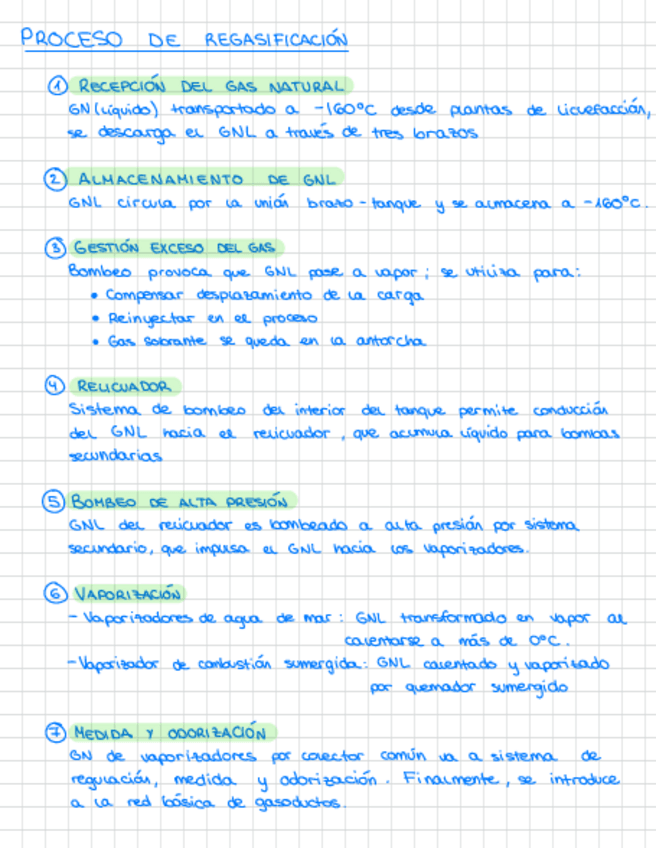 PROCESO DE REGASIFICACIÓN
① RECEPCIÓN DEL GAS NATURAL
GN (líquido) transportado a -160°C desde plantas de licuefacción,
se descarga el GNL a través de tres brazos
② ALMACENAMIENTO DE GNL
GNL circula por la unión brazo-tanque y se almacena a -160°C.
③ GESTIÓN EXCESO DEL GAS
Bombeo provoca que GNL pase a vapor; se utiliza para:
• Compensar desplazamiento de la carga
• Reinyectar en el proceso
• Gas sobrante se queda en la antorcha
④ RELICUADOR
Sistema de bombeo del interior del tanque permite conducción
del GNL hacia el relicuador, que acumula líquido para bombas
secundarias
⑤ BOMBEO DE ALTA PRESIÓN
GNL del relicuador es bombeado a alta presión por sistema
secundario, que impulsa el GNL hacia los vaporizadores.
⑥ VAPORIZACIÓN
- Vaporizadores de agua de mar: GNL transformado en vapor al
calentarse a más de 0°C.
- Vaporizador de combustión sumergida: GNL calentado y vaporizado
por quemador sumergido
⑦ MEDIDA Y ODORIZACIÓN
GN de vaporizadores por colector común va a sistema de
regulación, medida y odorización. Finalmente, se introduce
a la red básica de gasoductos.